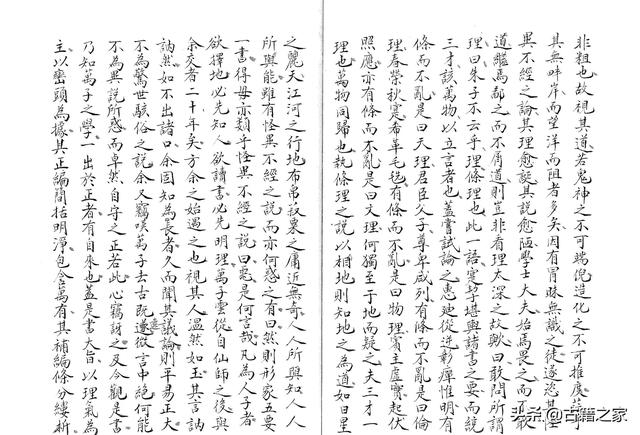 非粗也故視其道若鬼神之不可端倪造化之不可推度
其無畔岸而望洋而阻者多矣因有冒昧無識之徒遂恣其
異不經之論其理愈誕其說愈陋學士大夫始焉畏之而不敢
道繼焉鄙之而不屑道則豈非看理太深之故歟曰敢問所謂
理曰朱子不云乎理條理也此一語實堪輿諸書之要而統
三才該萬物以立言者也蓋嘗試論之惠廸從逆彰癉惟明有
條而不亂是曰天理君臣父子尊卑咸列有條而不亂是曰倫
理春榮秋實希革毛毨有條而不亂是曰物理賓主虛實起伏
照應亦有條而不亂是曰文理何獨至于地而疑之夫三才一
理也萬物同歸也執條理之說以相地則知地之為道如日星
之麗天江河之行地布帛菽粟之庸近無奇人人所與知人人
所與能雖有怪異不經之說而亦何惑之有曰然則形家五要
一書得毋亦類乎怪異不經之說曰惡是何言哉凡為人子者
欲擇地必先知人欲讀書必先明理萬子雲從自仙師之後與
余交者二十年矣方余之始遇之也視其人溫然如玉其言訥
訥然如不出諸口余固知為長者久而聞其議論則平易正大
不為驚世駭俗之說余又竊嘆萬子去古既遠微言中絕何能
不為異說所惑而卓然自守之正若此心竊訝之及今觀是書
乃知萬子之學一出於正者有自來也蓋是書大旨以理氣為
主以巒頭為據其正編簡括明淨包含萬有其補編條分縷析
头条@古籍之家